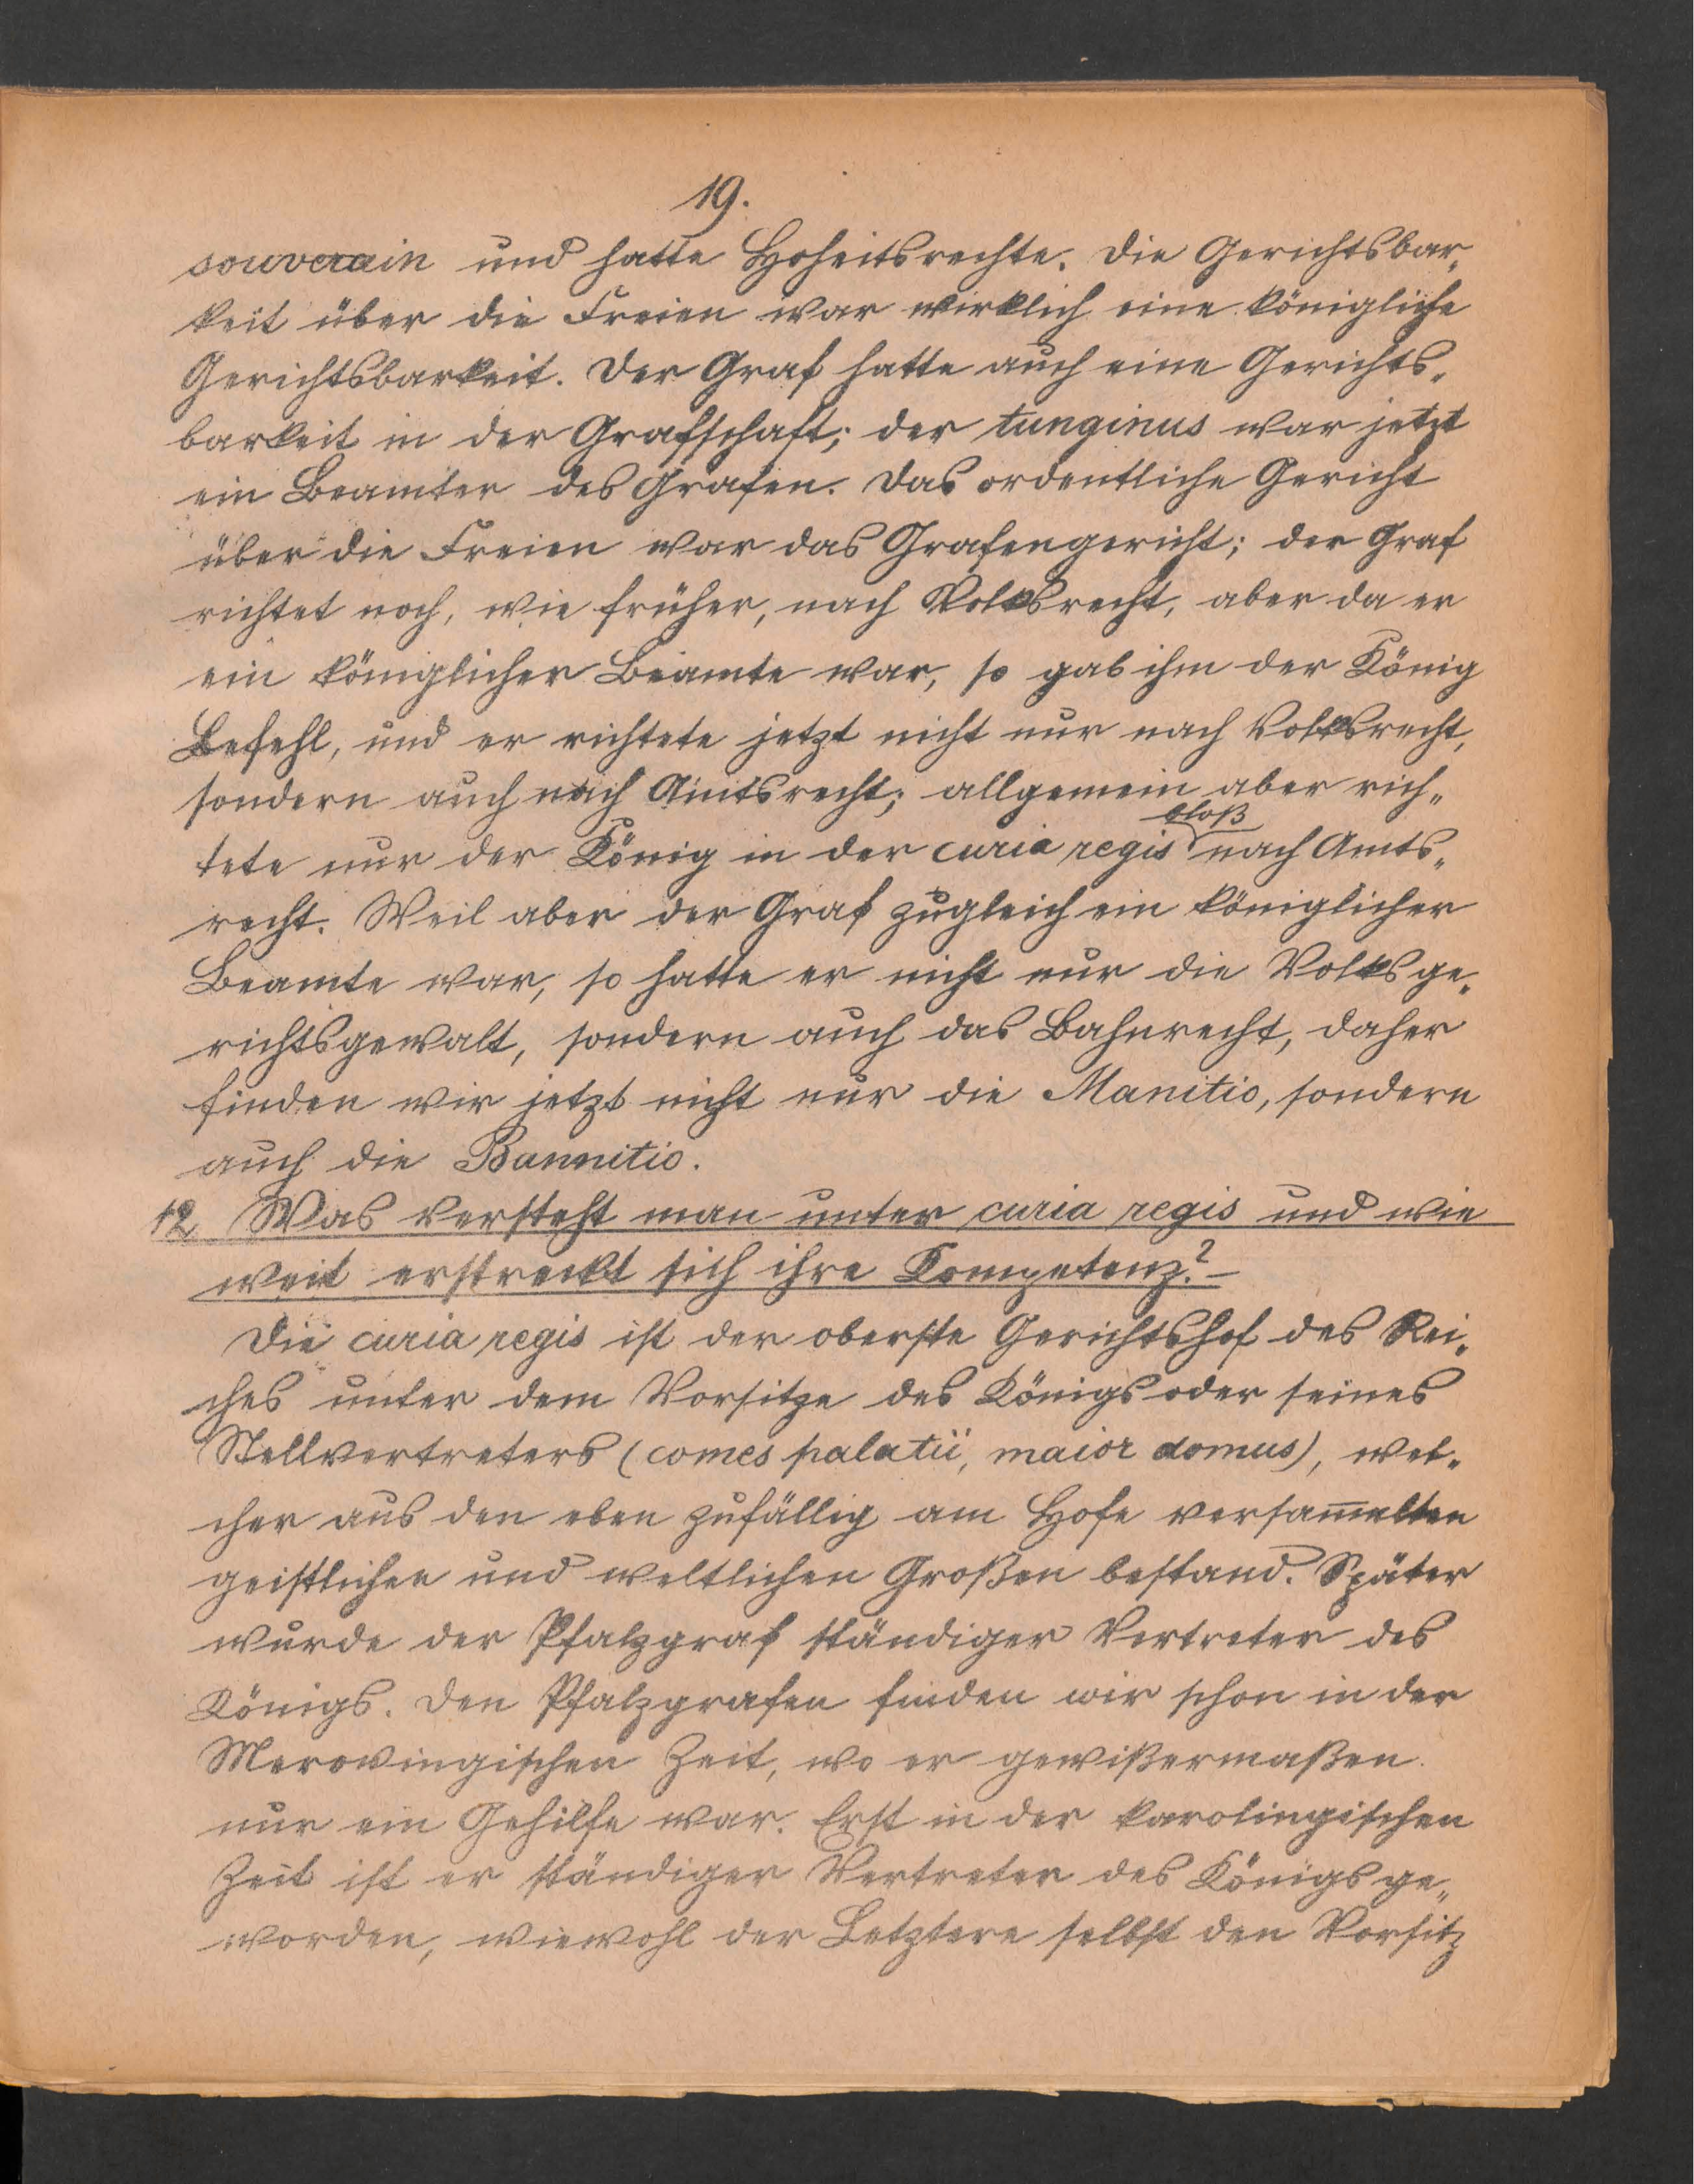 19.
souverain und hatte Hoheitsrechte. Die Gerichtsbar„
keit über die Freien war wirklich eine königliche
Gerichtsbarkeit. Der Graf hatte auch eine Gerichts„
barkeit in der Grafschaft; der tunginus war jetzt
ein Beamter des Grafen. Das ordentliche Gericht
über die Freien war das Grafengericht; der Graf
richtet noch, wie früher, nach Volksrecht, aber da er
ein königlicher Beamte war, so gab ihm der König
Befehl, und er richtete jetzt nicht nur nach Volksrecht,
sondern auch nach Amtsrecht; allgemein aber rich„
bloß
tete nur der König in der curia regis nach Amts„
recht. Weil aber der Graf zugleich ein königlicher
Beamte war, so hatte er nicht nur die Volksge„
richtsgewalt, sondern auch das Bahnrecht, daher
finden wir jetzt nicht nur die Manitio, sondern
auch die Bannitio.
12 Was versteht man unter curia regis und wie
weit erstreckt sich ihre Kompetenz? –
Die curia regis ist der oberste Gerichtshof des Rei„
ches unter dem Vorsitze des Königs oder seines
Stellvertreters (comes palatii, maior domus), wel„
cher aus den eben zufällig am Hofe versam̅elten
geistlichen und weltlichen Großen bestand. Später
wurde der Pfalzgraf ständiger Vertreter des
Königs. Den Pfalzgrafen finden wir schon in der
Merovingischen Zeit, wo er gewißermaßen
nur ein Gehilfe war. Erst in der karolingischen
Zeit ist er ständiger Vertreter des Königs ge„
worden, wiewohl der Letztere selbst den Vorsitz